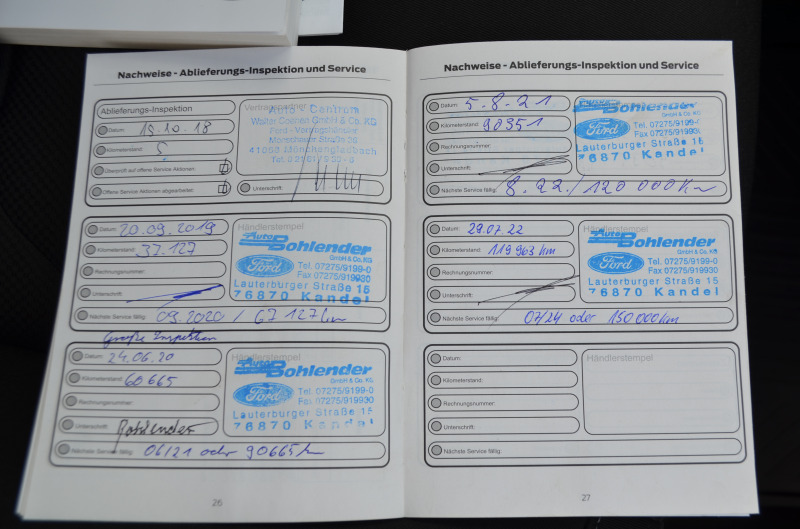 Nachweise - Ablieferungs-Inspektion und Service
Ablieferungs-Inspektion
Datum: 19.10.18
Kilometerstand: 5
Überprüft auf offene Service Aktionen:
Offene Service Aktionen abgearbeitet:
Vertragspartner
Auto - Centrum
Walter Coenen GmbH & Co. KG
Ford - Vertragshändler
Monschauer Straße 36
41068 Mönchengladbach
Unterschrift:
Datum: 20.09.2019
Kilometerstand: 37.127
Rechnungsnummer:
Unterschrift:
Händlerstempel
Auto Bohlender
GmbH & Co. KG
Ford
Tel. 07275/9199-0
Fax 07275/919930
Lauterburger Straße 15
76870 Kandel
Nächste Service fällig: 09.2020 / 67 127 km
Große Inspektion
Datum: 24.06.20
Kilometerstand: 60665
Rechnungsnummer:
Unterschrift: Bohlender
Händlerstempel
Auto Bohlender
GmbH & Co. KG
Ford
Tel. 07275/9199-0
Fax 07275/919930
Lauterburger Straße 15
76870 Kandel
Nächste Service fällig: 06/21 oder 90665 km
26
Nachweise - Ablieferungs-Inspektion und Service
Datum: 5.8.21
Kilometerstand: 90351
Rechnungsnummer:
Unterschrift:
Händlerstempel
Auto Bohlender
GmbH & Co. KG
Ford
Tel. 07275/9199-0
Fax 07275/919930
Lauterburger Straße 15
76870 Kandel
Nächste Service fällig: 8.22. / 120 000 Km
Datum: 29.07.22
Kilometerstand: 119963 km
Rechnungsnummer:
Unterschrift:
Händlerstempel
Auto Bohlender
GmbH & Co. KG
Ford
Tel. 07275/9199-0
Fax 07275/919930
Lauterburger Straße 15
76870 Kandel
Nächste Service fällig: 07/24 oder 150 000 km
Datum:
Kilometerstand:
Rechnungsnummer:
Unterschrift:
Händlerstempel
Nächste Service fällig:
27